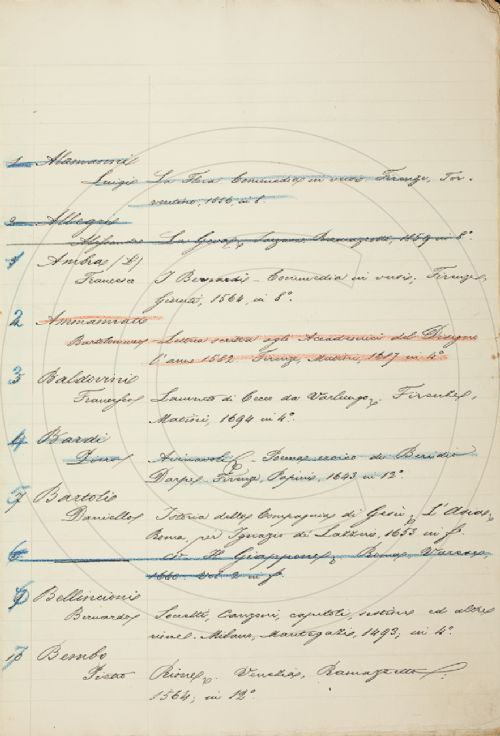 1 Alamanni
Luigi La Flora Commedia in versi Firenze, Tor-
rentino, in 8°.
2 Allegri
Alessandro La Geva, Ramazzotti in 8°.
1 Ambra (d')
Francesco I Bernardi - Commedia in versi, Firenze,
Giunti, 1564, in 8°.
2 Ammannati
Bartolommeo Lettera scritta agli Accademici del Disegno
l'anno 1582 Firenze, 1617 in 4°
3 Baldovini
Francesco Lamento di Cecco da Varlungo,
Matini, 1694 in 4°.
4 Bardi
Avinavoliottone - Poema eroico di
Firenze, 1643 in 12°.
5 Bartoli
Daniello Istoria della Compagnia di Gesù, L'Asia,
Roma, per Ignazio de Lazzeris, 1653 in f.
6 Il Giappone, Roma, Varese,
1660 Vol. 2 in f.
Bellincioni
Bernardo Sonetti, Canzoni, capitoli, sestine ed altre
rime. Milano, Mantegazio, 1493, in 4°.
Bembo
Pietro Rime, Venezia,
1564, in 12°.